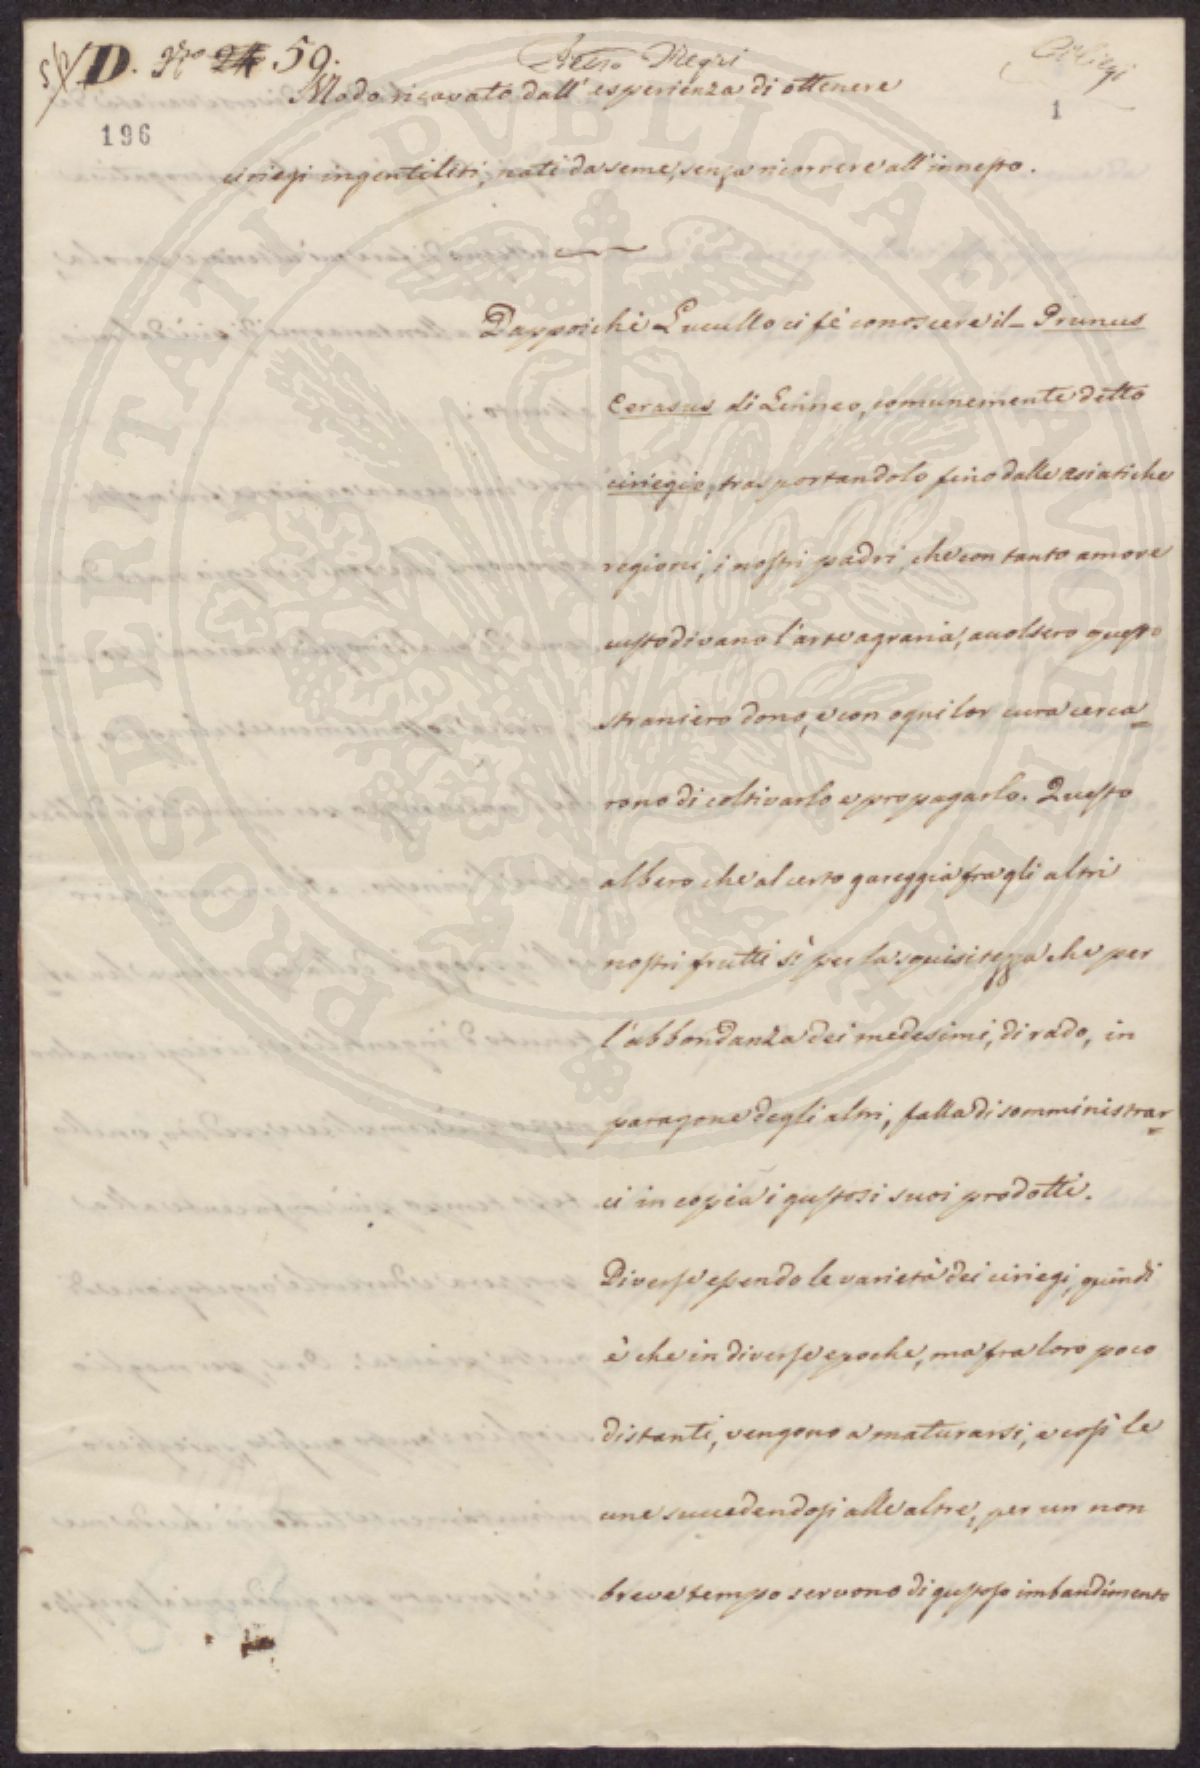 D. N.º 24 59.
Negri
Ciliegi
Modo ricavato dall'esperienza di ottenere
1
196
ciriegi ingentiliti, nati da seme, senza ricorrere all'innesto.
Dappoichè Lucullo ci fè conoscere il Prunus
Cerasus di Linneo, comunemente detto
ciriegio, trasportandolo fino dalle asiatiche
regioni, i nostri padri, che con tanto amore
custodivano l'arte agraria, accolsero questo
straniero dono, e con ogni lor cura cerca=
rono di coltivarlo e propagarlo. Questo
albero che al certo gareggia fra gli altri
nostri frutti sì per la squisitezza che per
l'abbondanza dei medesimi, di rado, in
paragone degli altri, falla di somministrar=
ci in copia i gustosi suoi prodotti.
Diverse essendo le varietà dei ciriegi, quindi
è che in diverse epoche, ma fra loro poco
distanti, vengono a maturarsi, e così le
une succedendosi alle altre, per un non
breve tempo servono di gustoso imbandimento
PROSPERITATI PVBLICAE AVGENDAE